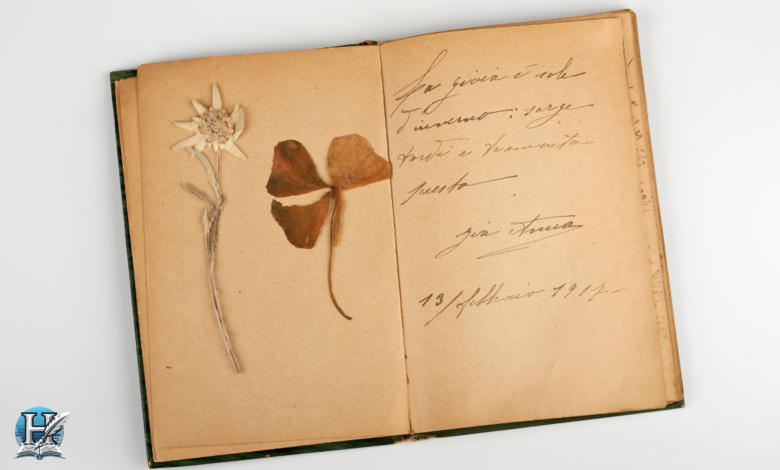 La gioia è sole
d'inverno: sorge
tardi e tramonta
presto
zia Anna
13/febbraio 1917
H